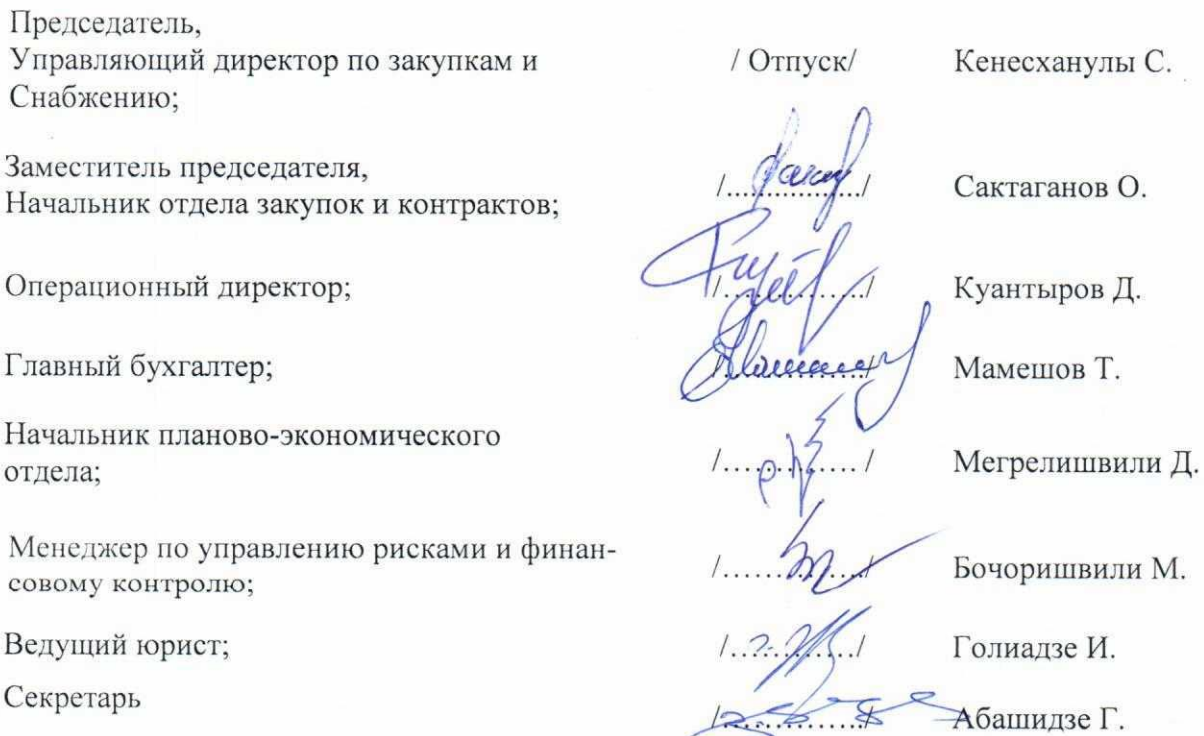 Председатель,
Управляющий директор по закупкам и / Отпуск/ Кенесханулы С.
Снабжению;
Заместитель председателя,
Начальник отдела закупок и контрактов; /................/ Сактаганов О.
Операционный директор; /................/ Куантыров Д.
Главный бухгалтер; /................/ Мамешов Т.
Начальник планово-экономического
отдела; /................ / Мегрелишвили Д.
Менеджер по управлению рисками и финан-
совому контролю; /................/ Бочоришвили М.
Ведущий юрист; /................/ Голиадзе И.
Секретарь
/................/ Абашидзе Г.